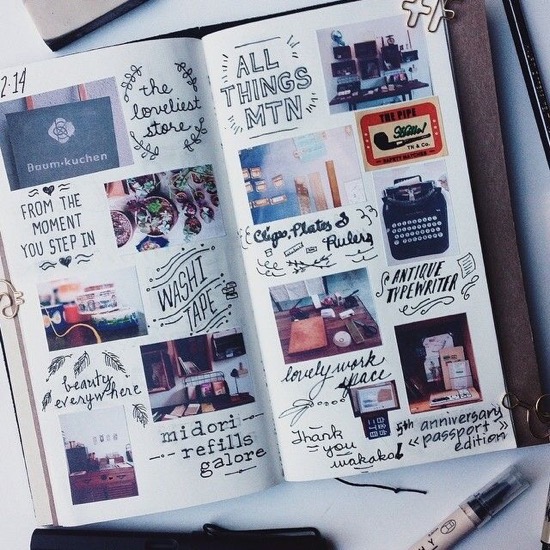 2.14
Baum·kuchen
the
loveliest
store
FROM THE
MOMENT
YOU STEP IN
WASHI
TAPE
beauty
everywhere
midori
refills
galore
ALL
THINGS
MTN
THE PIPE
Hello!
TN & Co.
SAFETY MATCHES
Clips, Plates &
Rulers
ANTIQUE
TYPEWRITER
lovely work
space
5th anniversary
"passport"
edition
Thank
you
wakako!